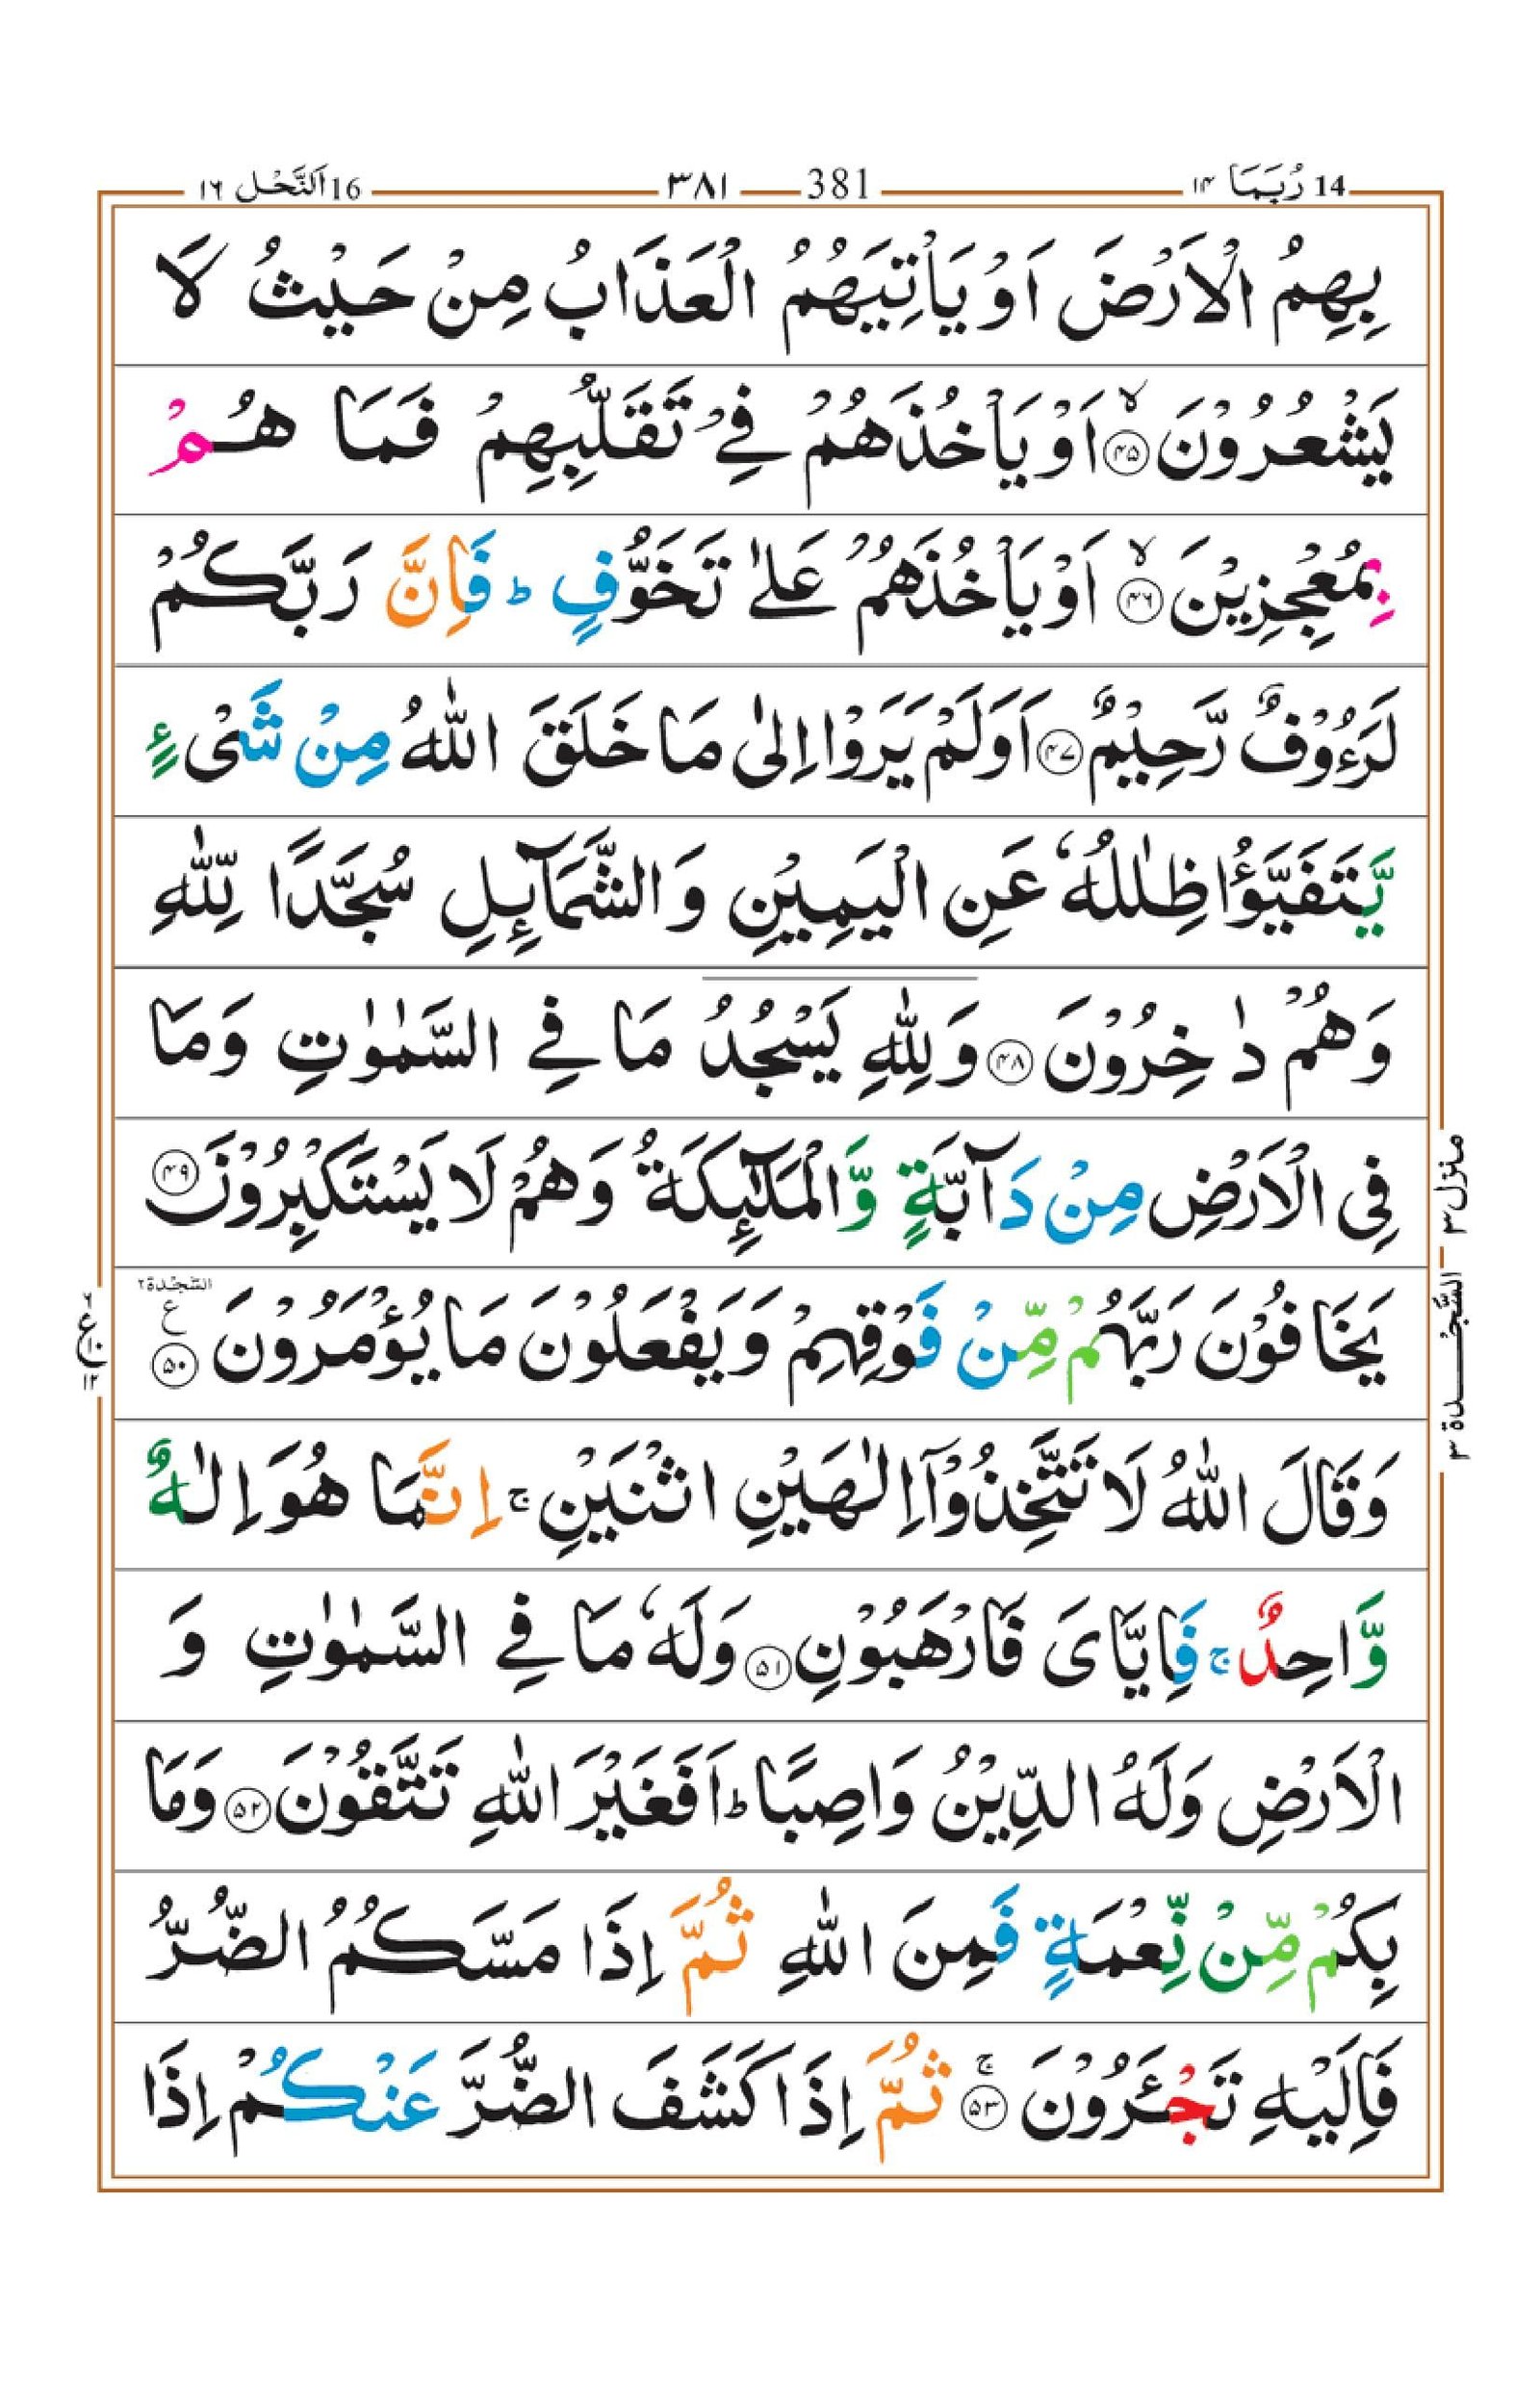 14 رُبَمَا ۱۴ 381 ۳۸۱ 16 اَلنَّحْل ۱۶
بِهِمُ الْاَرْضَ اَوْ يَاْتِيَهُمُ الْعَذَابُ مِنْ حَيْثُ لَا
يَشْعُرُوْنَ ۙ‏﴿۴۵﴾ اَوْ يَاْخُذَهُمْ فِيْ تَقَلُّبِهِمْ فَمَا هُمْ
بِمُعْجِزِيْنَ ۙ‏﴿۴۶﴾ اَوْ يَاْخُذَهُمْ عَلٰى تَخَوُّفٍ ؕ فَاِنَّ رَبَّكُمْ
لَرَءُوْفٌ رَّحِيْمٌ ﴿۴۷﴾ اَوَلَمْ يَرَوْا اِلٰى مَا خَلَقَ اللّٰهُ مِنْ شَىْءٍ
يَّتَفَيَّؤُا ظِلٰلُهٗ عَنِ الْيَمِيْنِ وَالشَّمَآئِلِ سُجَّدًا لِّلّٰهِ
وَهُمْ دٰخِرُوْنَ ﴿۴۸﴾ وَلِلّٰهِ يَسْجُدُ مَا فِي السَّمٰوٰتِ وَمَا
فِى الْاَرْضِ مِنْ دَآبَّةٍ وَّالْمَلٰٓئِكَةُ وَهُمْ لَا يَسْتَكْبِرُوْنَ ﴿۴۹﴾
يَخَافُوْنَ رَبَّهُمْ مِّنْ فَوْقِهِمْ وَيَفْعَلُوْنَ مَا يُؤْمَرُوْنَ ﴿۵۰﴾ ع السَّجْدَة۲
وَقَالَ اللّٰهُ لَا تَتَّخِذُوْۤا اِلٰهَيْنِ اثْنَيْنِ ۚ اِنَّمَا هُوَ اِلٰهٌ
وَّاحِدٌ ۚ فَاِيَّاىَ فَارْهَبُوْنِ ﴿۵۱﴾ وَلَهٗ مَا فِي السَّمٰوٰتِ وَ
الْاَرْضِ وَلَهُ الدِّيْنُ وَاصِبًا ؕ اَفَغَيْرَ اللّٰهِ تَتَّقُوْنَ ﴿۵۲﴾ وَمَا
بِكُمْ مِّنْ نِّعْمَةٍ فَمِنَ اللّٰهِ ثُمَّ اِذَا مَسَّكُمُ الضُّرُّ
فَاِلَيْهِ تَجْـَٔرُوْنَ ۚ‏﴿۵۳﴾ ثُمَّ اِذَا كَشَفَ الضُّرَّ عَنْكُمْ اِذَا
منزل ۳
السَّجْدة ۳
ع ۱۲